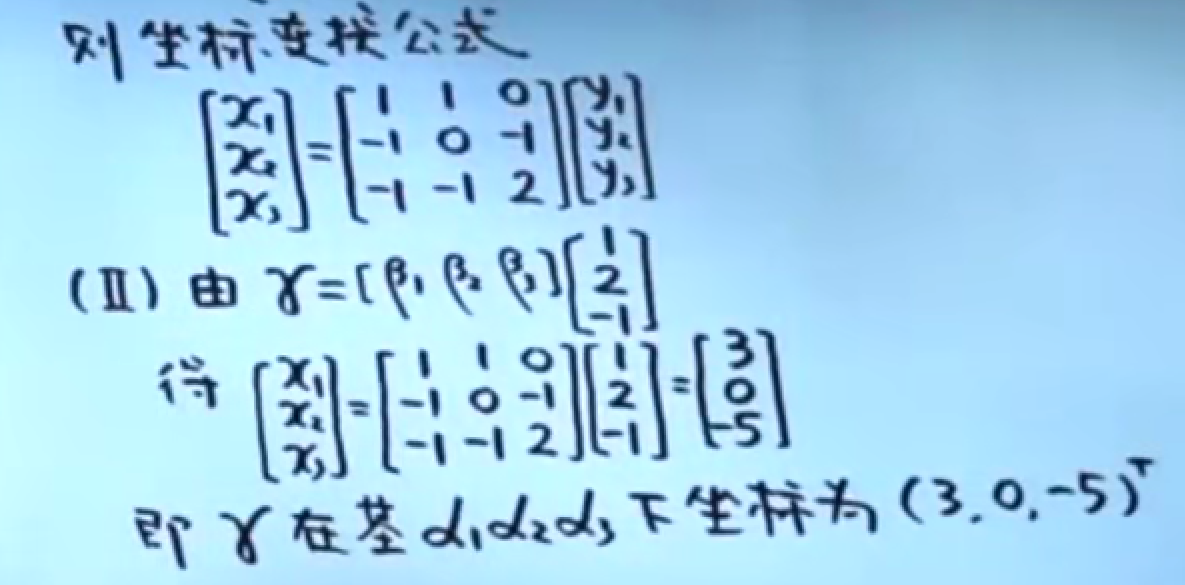 则坐标变换公式
[x₁ x₂ x₃] = [1 1 0; -1 0 -1; -1 -1 2][y₁ y₂ y₃]
(Ⅱ) 由 γ=[β₁ β₂ β₃][1 2 -1]
得 [x₁ x₂ x₃] = [1 1 0; -1 0 -1; -1 -1 2][1 2 -1] = [3 0 -5]
即 γ 在基 α₁α₂α₃ 下坐标为 (3,0,-5)ᵀ